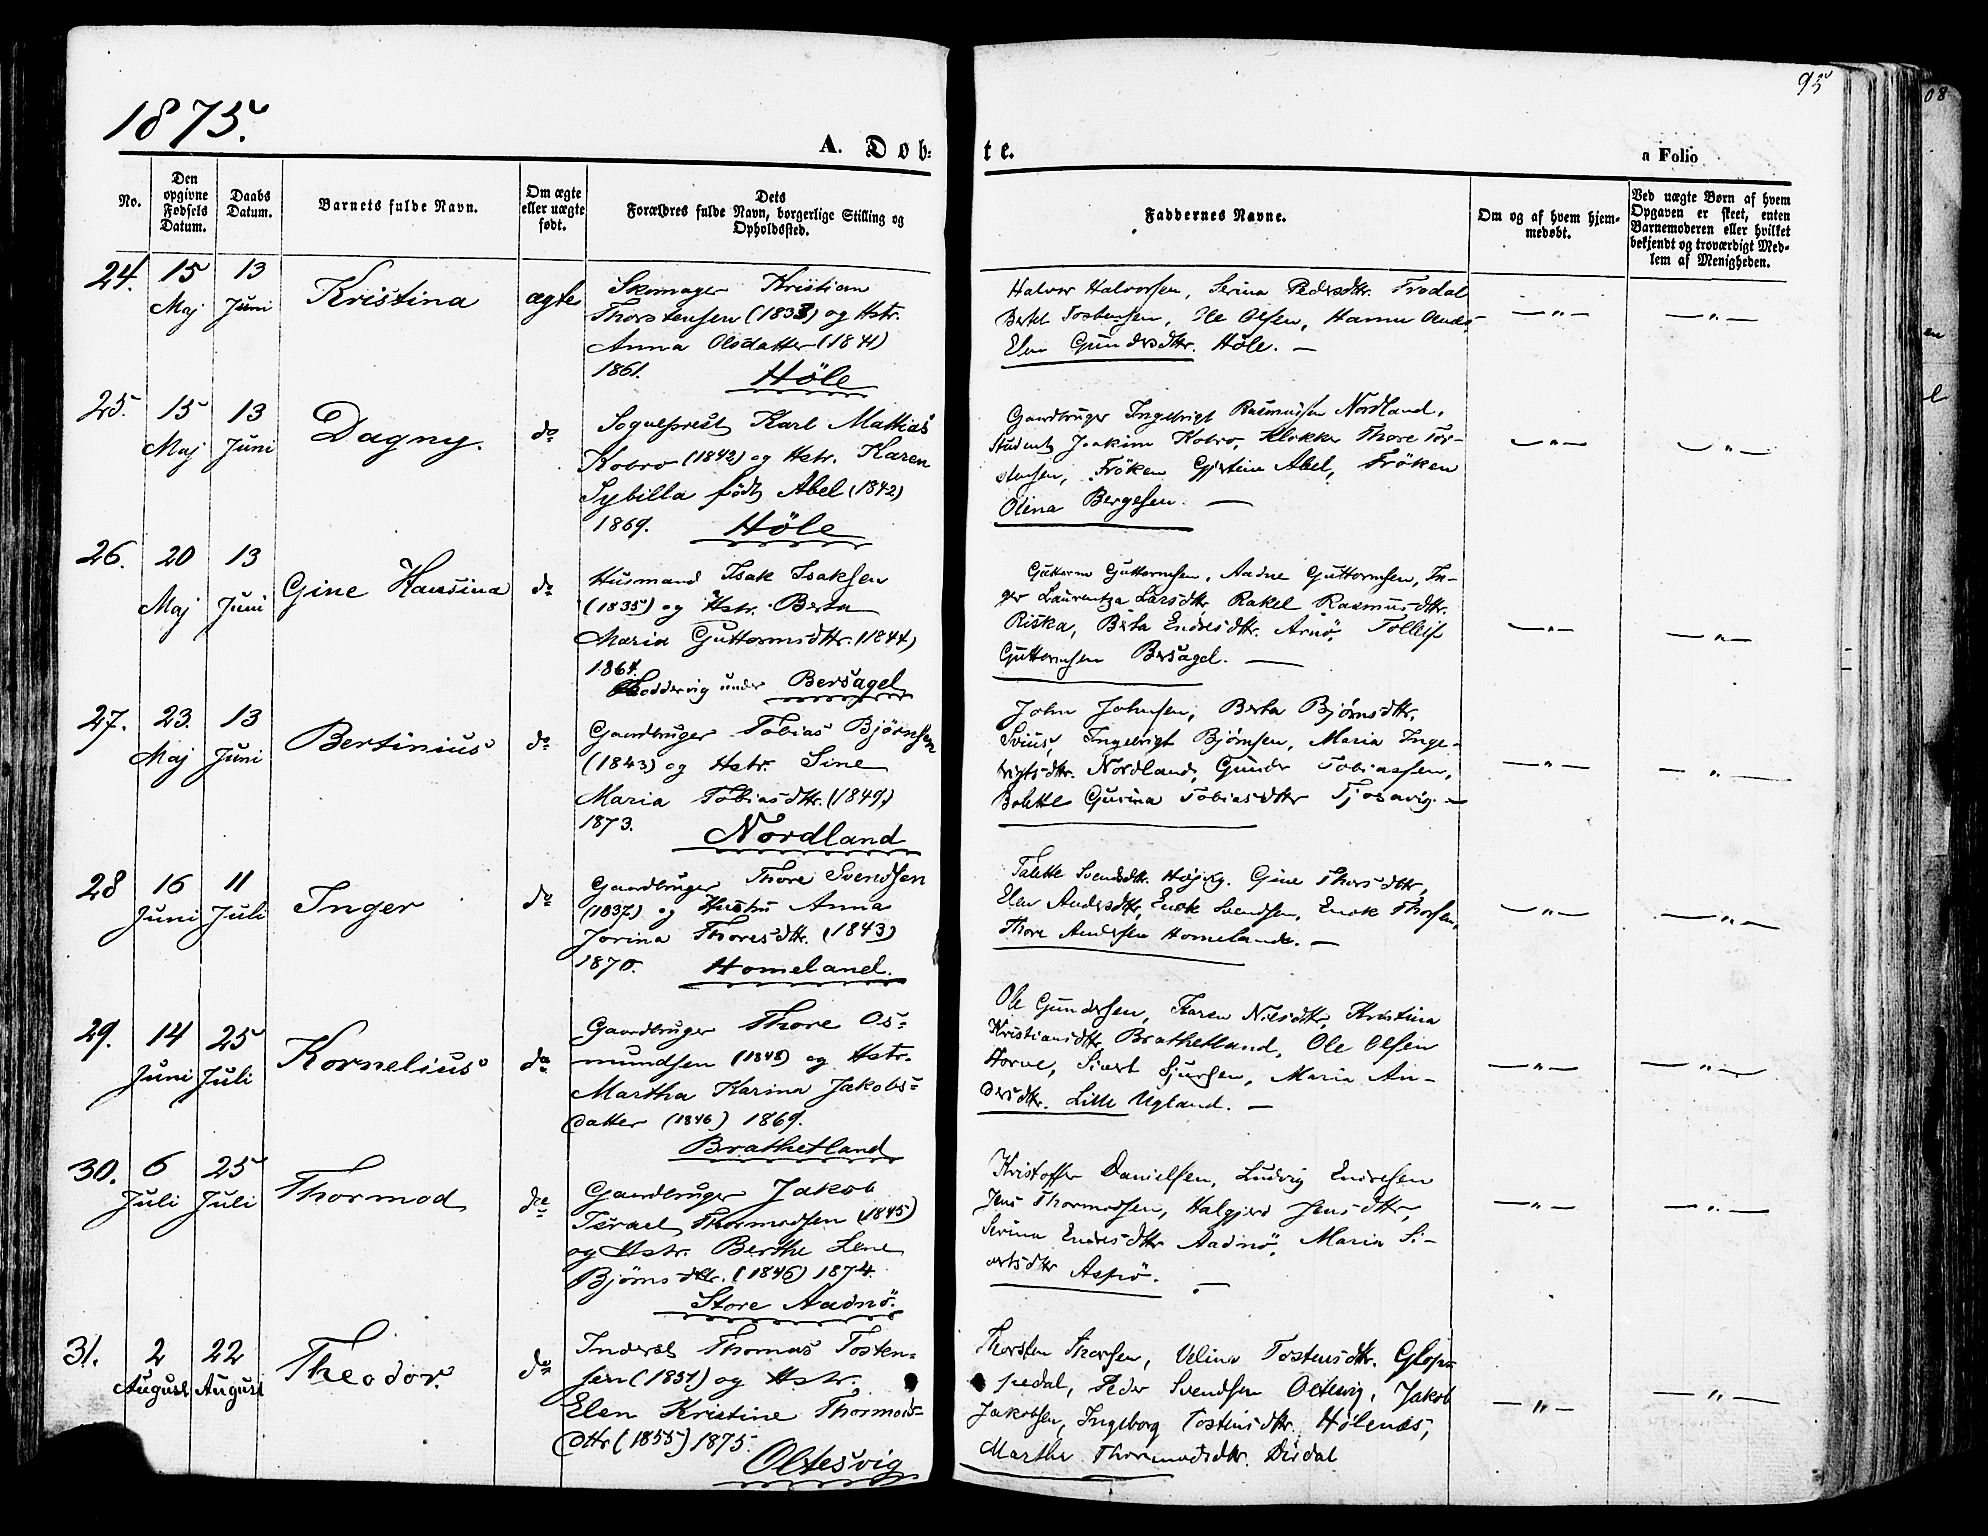 1875.
95
08
A. Døb-
te.
a Folio
No.
Den opgivne Fødsels Datum.
Daabs Datum.
Barnets fulde Navn.
Om ægte eller uægte født.
Dets Forældres fulde Navn, borgerlige Stilling og Opholdssted.
Faddernes Navne.
Om og af hvem hjemmedøbt.
Ved uægte Børn af hvem Opgaven er skeet, enten Barnemoderen eller hvilket bekjendt og troværdigt Medlem af Menigheden.
24. 15 Maj 13 Juni Kristina ægte
Skomager Kristian
Thorstensen (1838) og Hstr.
Anna Olsdatter (1841)
1861. Höle
Halvor Halvorsen, Serina Pedersdttr. Frodal
Bertel Tostensen, Ole Olsen, Hanna
Elen Gundersdttr. Höle. —
— " — — " —
25. 15 Maj 13 Juni Dagny. do
Sogneprest Karl Mattias
Kobro (1842) og Hstr. Karen
Sybilla födt Abel (1842)
1869. Höle
Gaardbruger Ingebrigt Rasmussen Nordland,
Student Joakim Kobro, Klokker Thore Tor-
stensen, Fröken Gjertine Abel, Fröken
Olina Bergesen. —
— " — — " —
26. 20 Maj 13 Juni Gine Hansina do
Husmand Isak Isaksen
(1835) og Hstr. Berta
Maria Guttormsdttr. (1844)
1864.
under Bersagel
Guttorm Guttormsen, Aadne Guttormsen, In-
ger Laurentza Larsdttr, Rakel Rasmusdttr.
Riska, Berta Endresdttr. Arnö, Tollef
Guttormsen Bersagel. —
— " — — " —
27. 23. Maj 13 Juni Bertinius do
Gaardbruger Tobias Björnsen
(1843) og Hstr. Sine
Maria Tobiasdttr. (1849)
1873. Nordland
John Johnsen, Berta Björnsdttr.
Ingebrigt Björnsen, Maria Inge-
brigtsdttr. Nordland, Gunder Tobiassen,
Bolette Gurina Tobiasdttr Tjosavig. —
— " — — " —
28 16 Juni 11 Juli Inger do
Gaardbruger Thore Svendsen
(1837) og Hustru Anna
Jorina Thoresdttr. (1843)
1870. Homeland.
Talette Svendsdttr. Gine Thorsdttr,
Elen Andersdttr, Enok Svendsen, Enok Thorsen,
Thore Andersen Homeland. —
— " — — " —
29. 14 Juni 25 Juli Kornelius do
Gaardbruger Thore Os-
mundsen (1848) og Hstr.
Martha Karina Jakobs-
datter (1846) 1869.
Brathetland
Ole Gundersen, Karen Nilsdttr, Kristina
Kristiansdttr Brathetland, Ole Olsen
Horve, Sivert Sjursen, Maria An-
dersdttr. Lille Ugland. —
— " — — " —
30. 6 Juli 25 Juli Thormod do
Gaardbruger Jakob
Israel Thormodsen (1845)
og Hstr. Berthe Lene
Björnsdttr. (1846) 1874.
Store Aadnö.
Kristoffer Danielsen, Ludvig Endresen
Jens Thormodsen, Halgjerd Jensdttr,
Serina Endresdttr Aadnö, Maria Si-
vertsdttr Aspö. —
— " — — " —
31. 2 August 22 August Theodor. do
Inderst Thomas Tosten-
sen (1851) og Hstr.
Elen Kristine Thormods-
dttr (1855) 1875.
Oltesvig
Thorsten Thorsen, Velina Tostensdttr. Glops-
pedal, Peder Svendsen Oltesvig, Jakob
Jakobsen, Ingeborg Tostensdttr. Hölenæs,
Marthe Thormodsdttr. Dirdal
— " — — " —